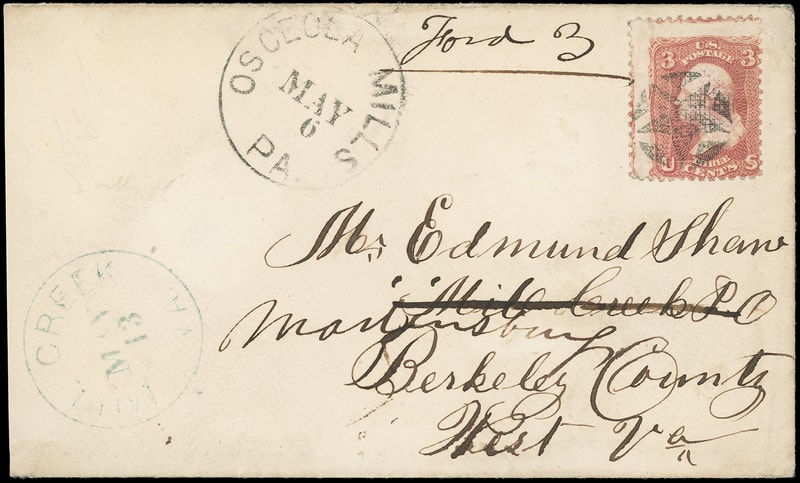 OSCEOLA MILLS
MAY
6
PA.
Ford 3
3 U.S. 3
POSTAGE
THREE
U CENTS S
Mr Edmund Shaw
"Mill Creek P.O
Martinsburg
Berkeley County
West Va
MILL CREEK VA.
MAY
13